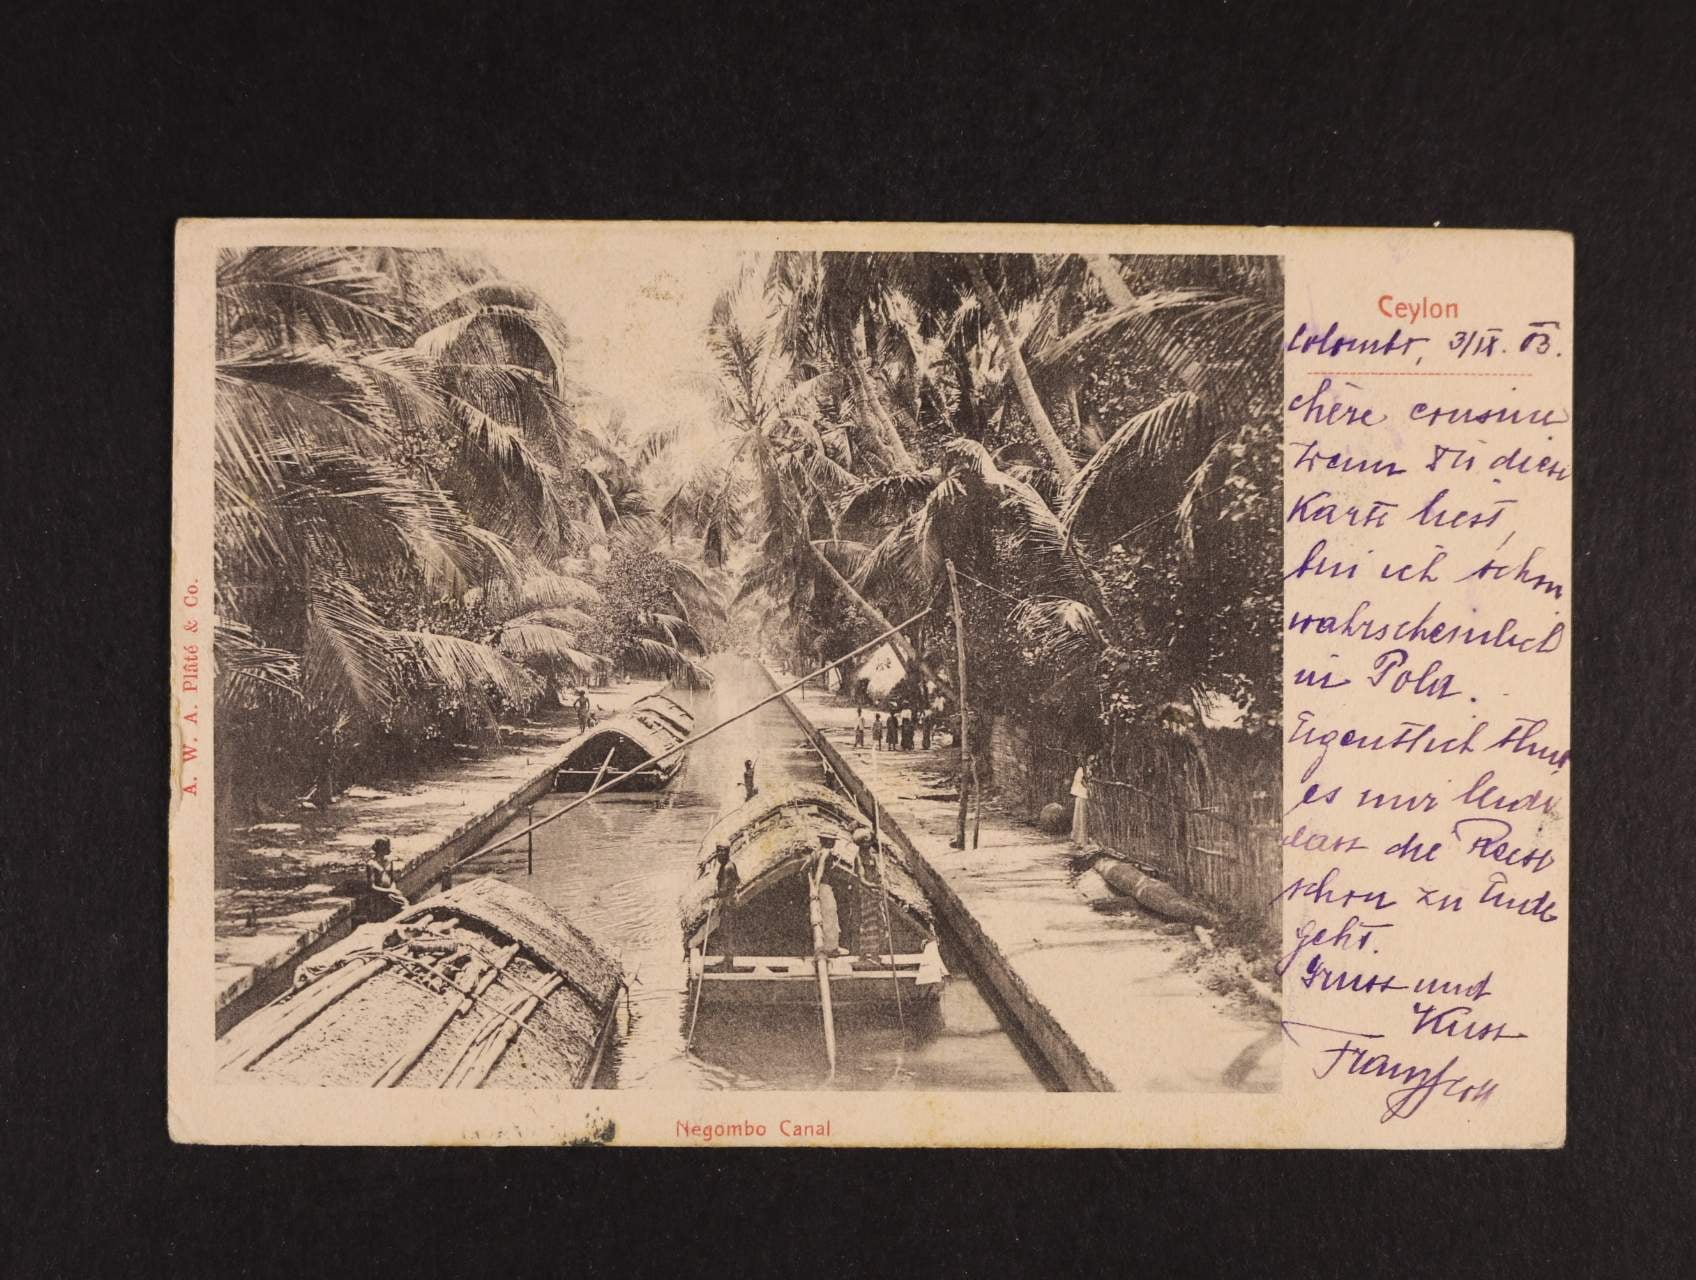 Ceylon
Colombo, 3/IX. 03.
chère cousine
Wenn Du diese
Karte liest,
bin ich schon
wahrscheinlich
in Pola.
Eigentlich thut
es mir leid
dass die Reise
schon zu Ende
geht.
Gruss und
Kuss
A. W. A. Plâté & Co.
Negombo Canal